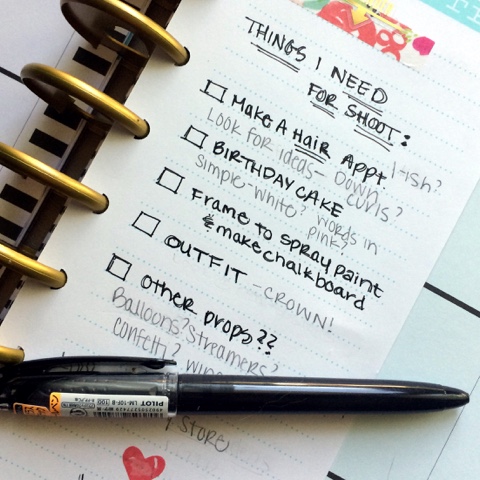 THINGS I NEED
FOR SHOOT:
MAKE A HAIR APPT 1-ish?
Look for ideas- Down,
curls?
BIRTHDAY CAKE
Simple-white? words in
pink?
Frame to spray paint
& make chalkboard
OUTFIT - CROWN!
Other props??
Balloons? Streamers?
confetti?
PILOT
store